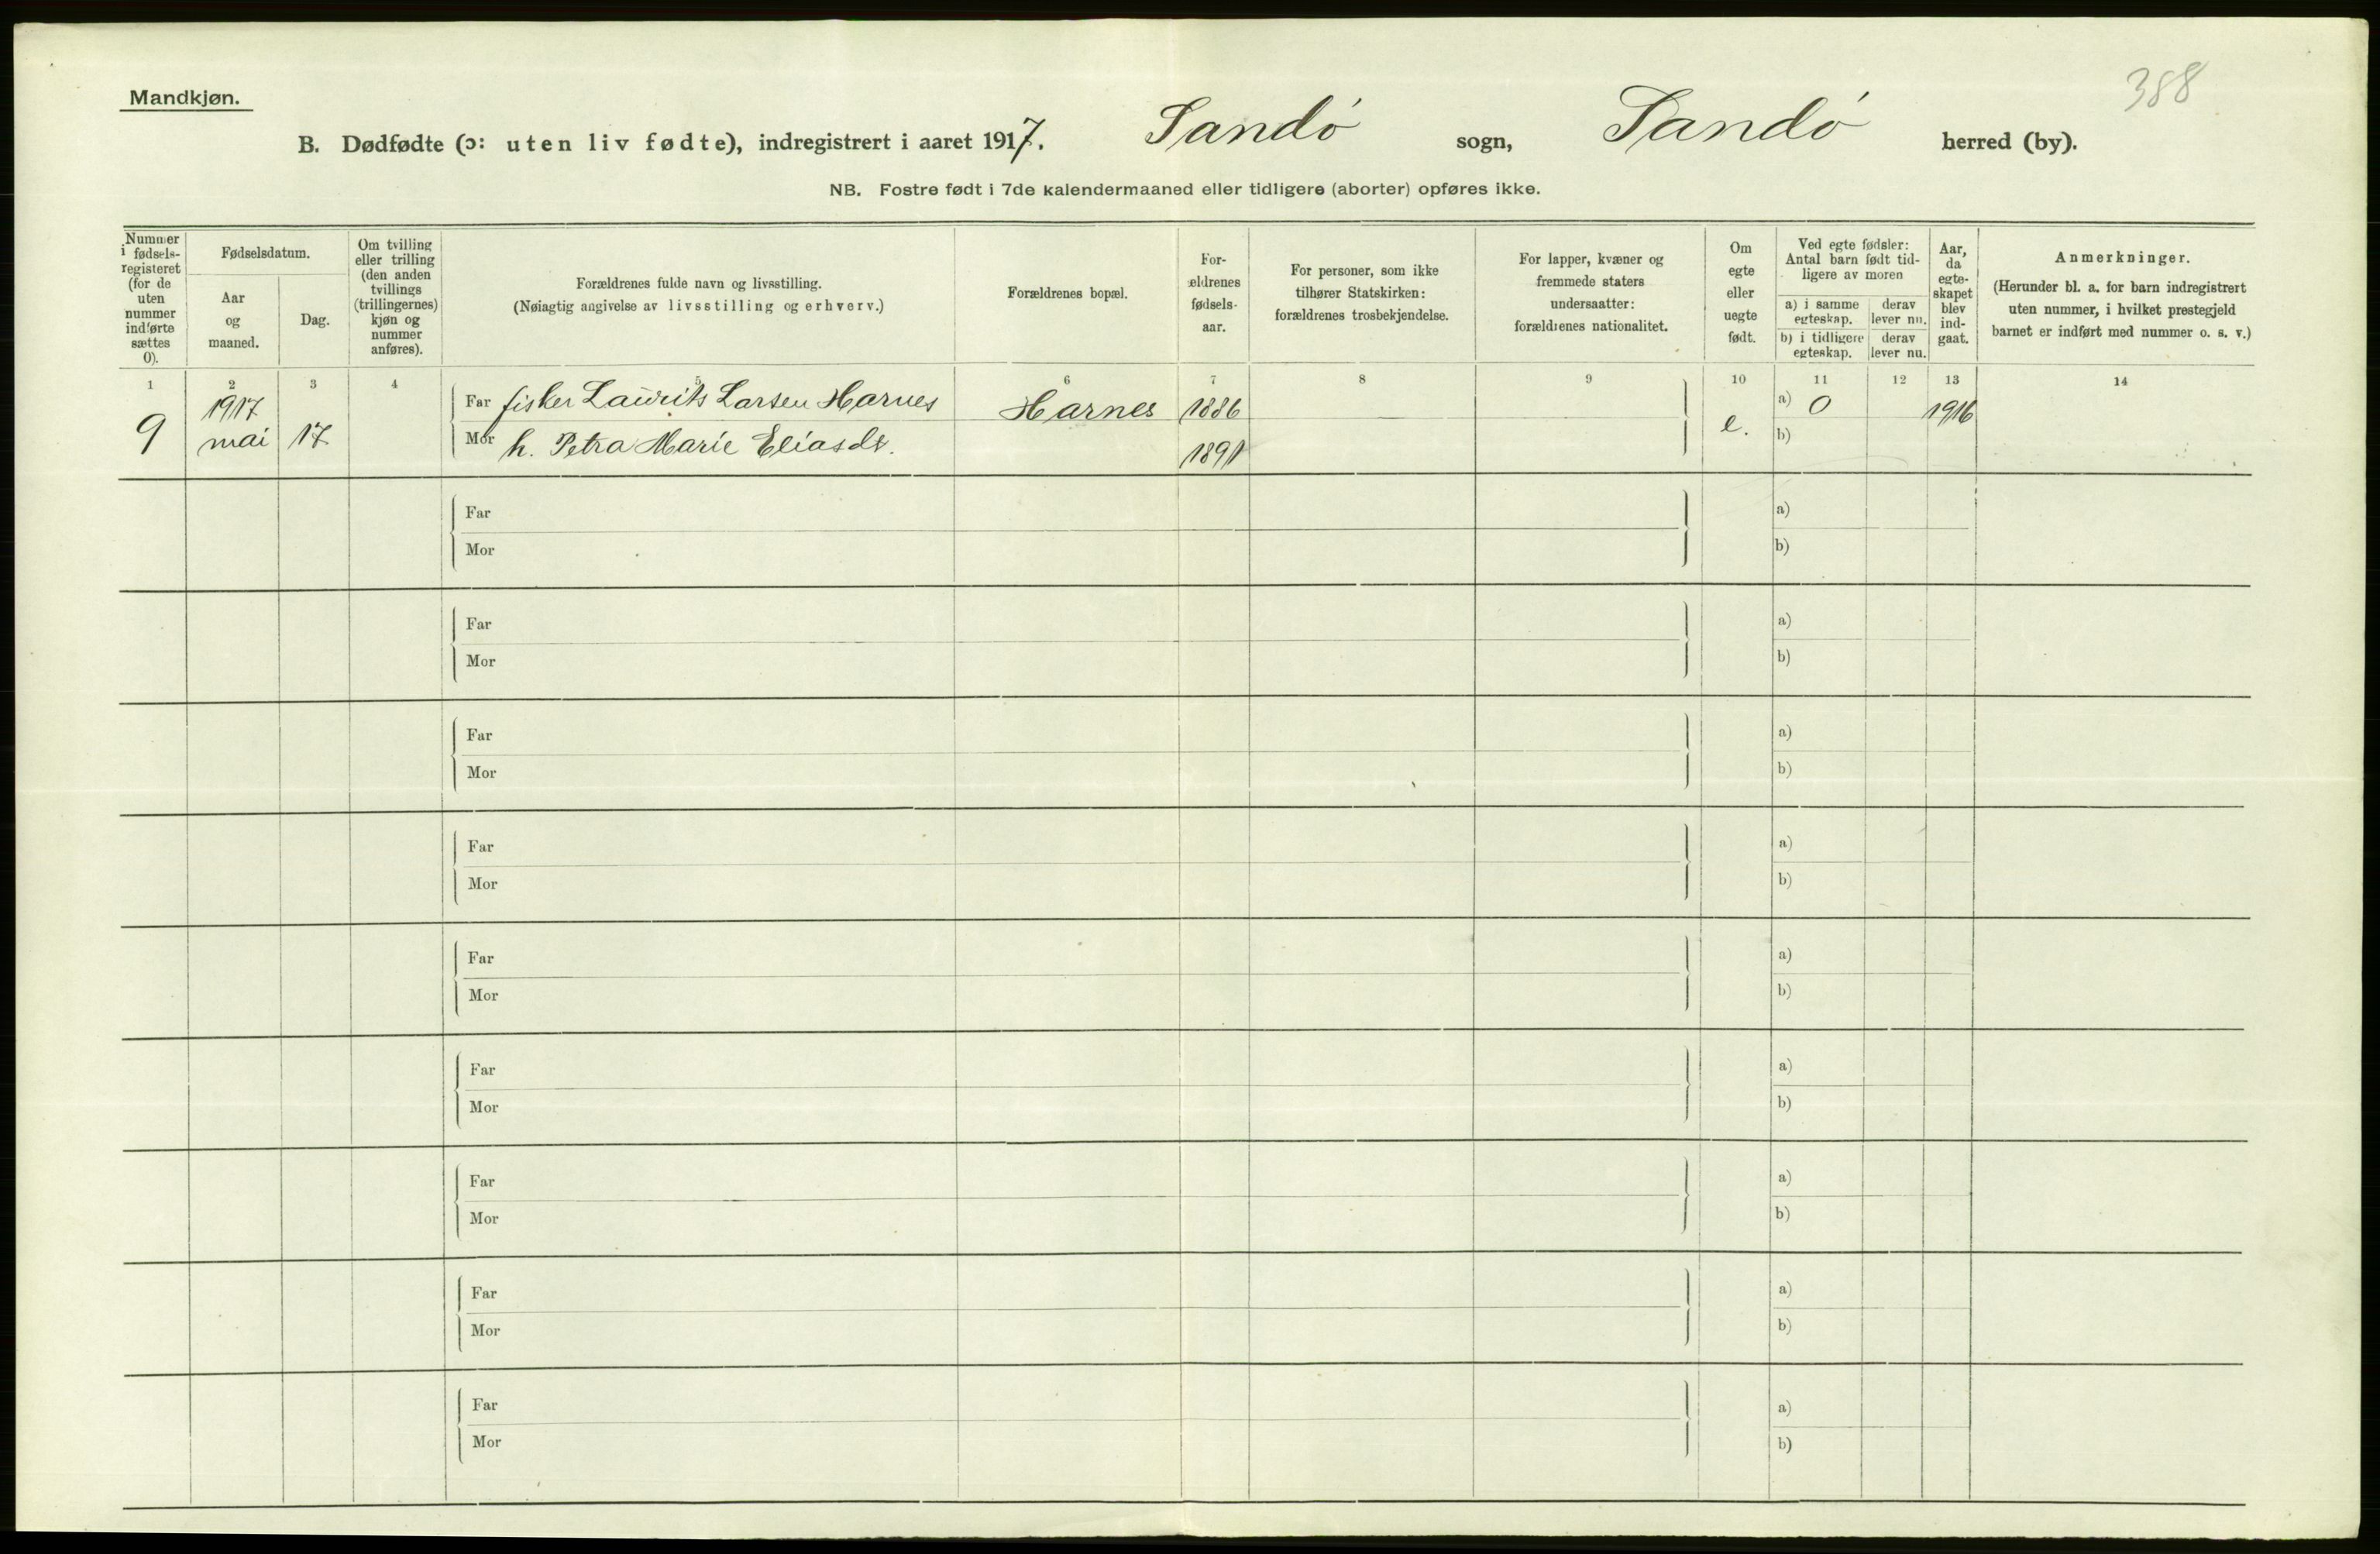 388
Mandkjøn.
B. Dødfødte (ɔ: uten liv fødte), indregistrert i aaret 1917. Sandø sogn, Sandø herred (by).
NB. Fostre født i 7de kalendermaaned eller tidligere (aborter) opføres ikke.
Nummer i fødsels-registeret (for de uten nummer indførte sættes 0).
Fødselsdatum.
Aar og maaned.
Dag.
Om tvilling eller trilling (den anden tvillings (trillingernes) kjøn og nummer anføres).
Forældrenes fulde navn og livsstilling.
(Nøiagtig angivelse av livsstilling og erhverv.)
Forældrenes bopæl.
For-ældrenes fødsels-aar.
For personer, som ikke tilhører Statskirken: forældrenes trosbekjendelse.
For lapper, kvæner og fremmede staters undersaatter: forældrenes nationalitet.
Om egte eller uegte født.
Ved egte fødsler: Antal barn født tid-ligere av moren
a) i samme egteskap.
derav lever nu.
b) i tidligere egteskap.
derav lever nu.
Aar, da egte-skapet blev ind-gaat.
Anmerkninger.
(Herunder bl. a. for barn indregistrert uten nummer, i hvilket prestegjeld barnet er indført med nummer o. s. v.)
1 2 3 4 5 6 7 8 9 10 11 12 13 14
9 1917 mai 17
Far fisker Laurits Larsen Harnes Harnes 1886 — — e. a) 0 1916
Mor h. Petra Marie Eliasdt. 1891 b)
Far a)
Mor b)
Far a)
Mor b)
Far a)
Mor b)
Far a)
Mor b)
Far a)
Mor b)
Far a)
Mor b)
Far a)
Mor b)
Far a)
Mor b)
Far a)
Mor b)